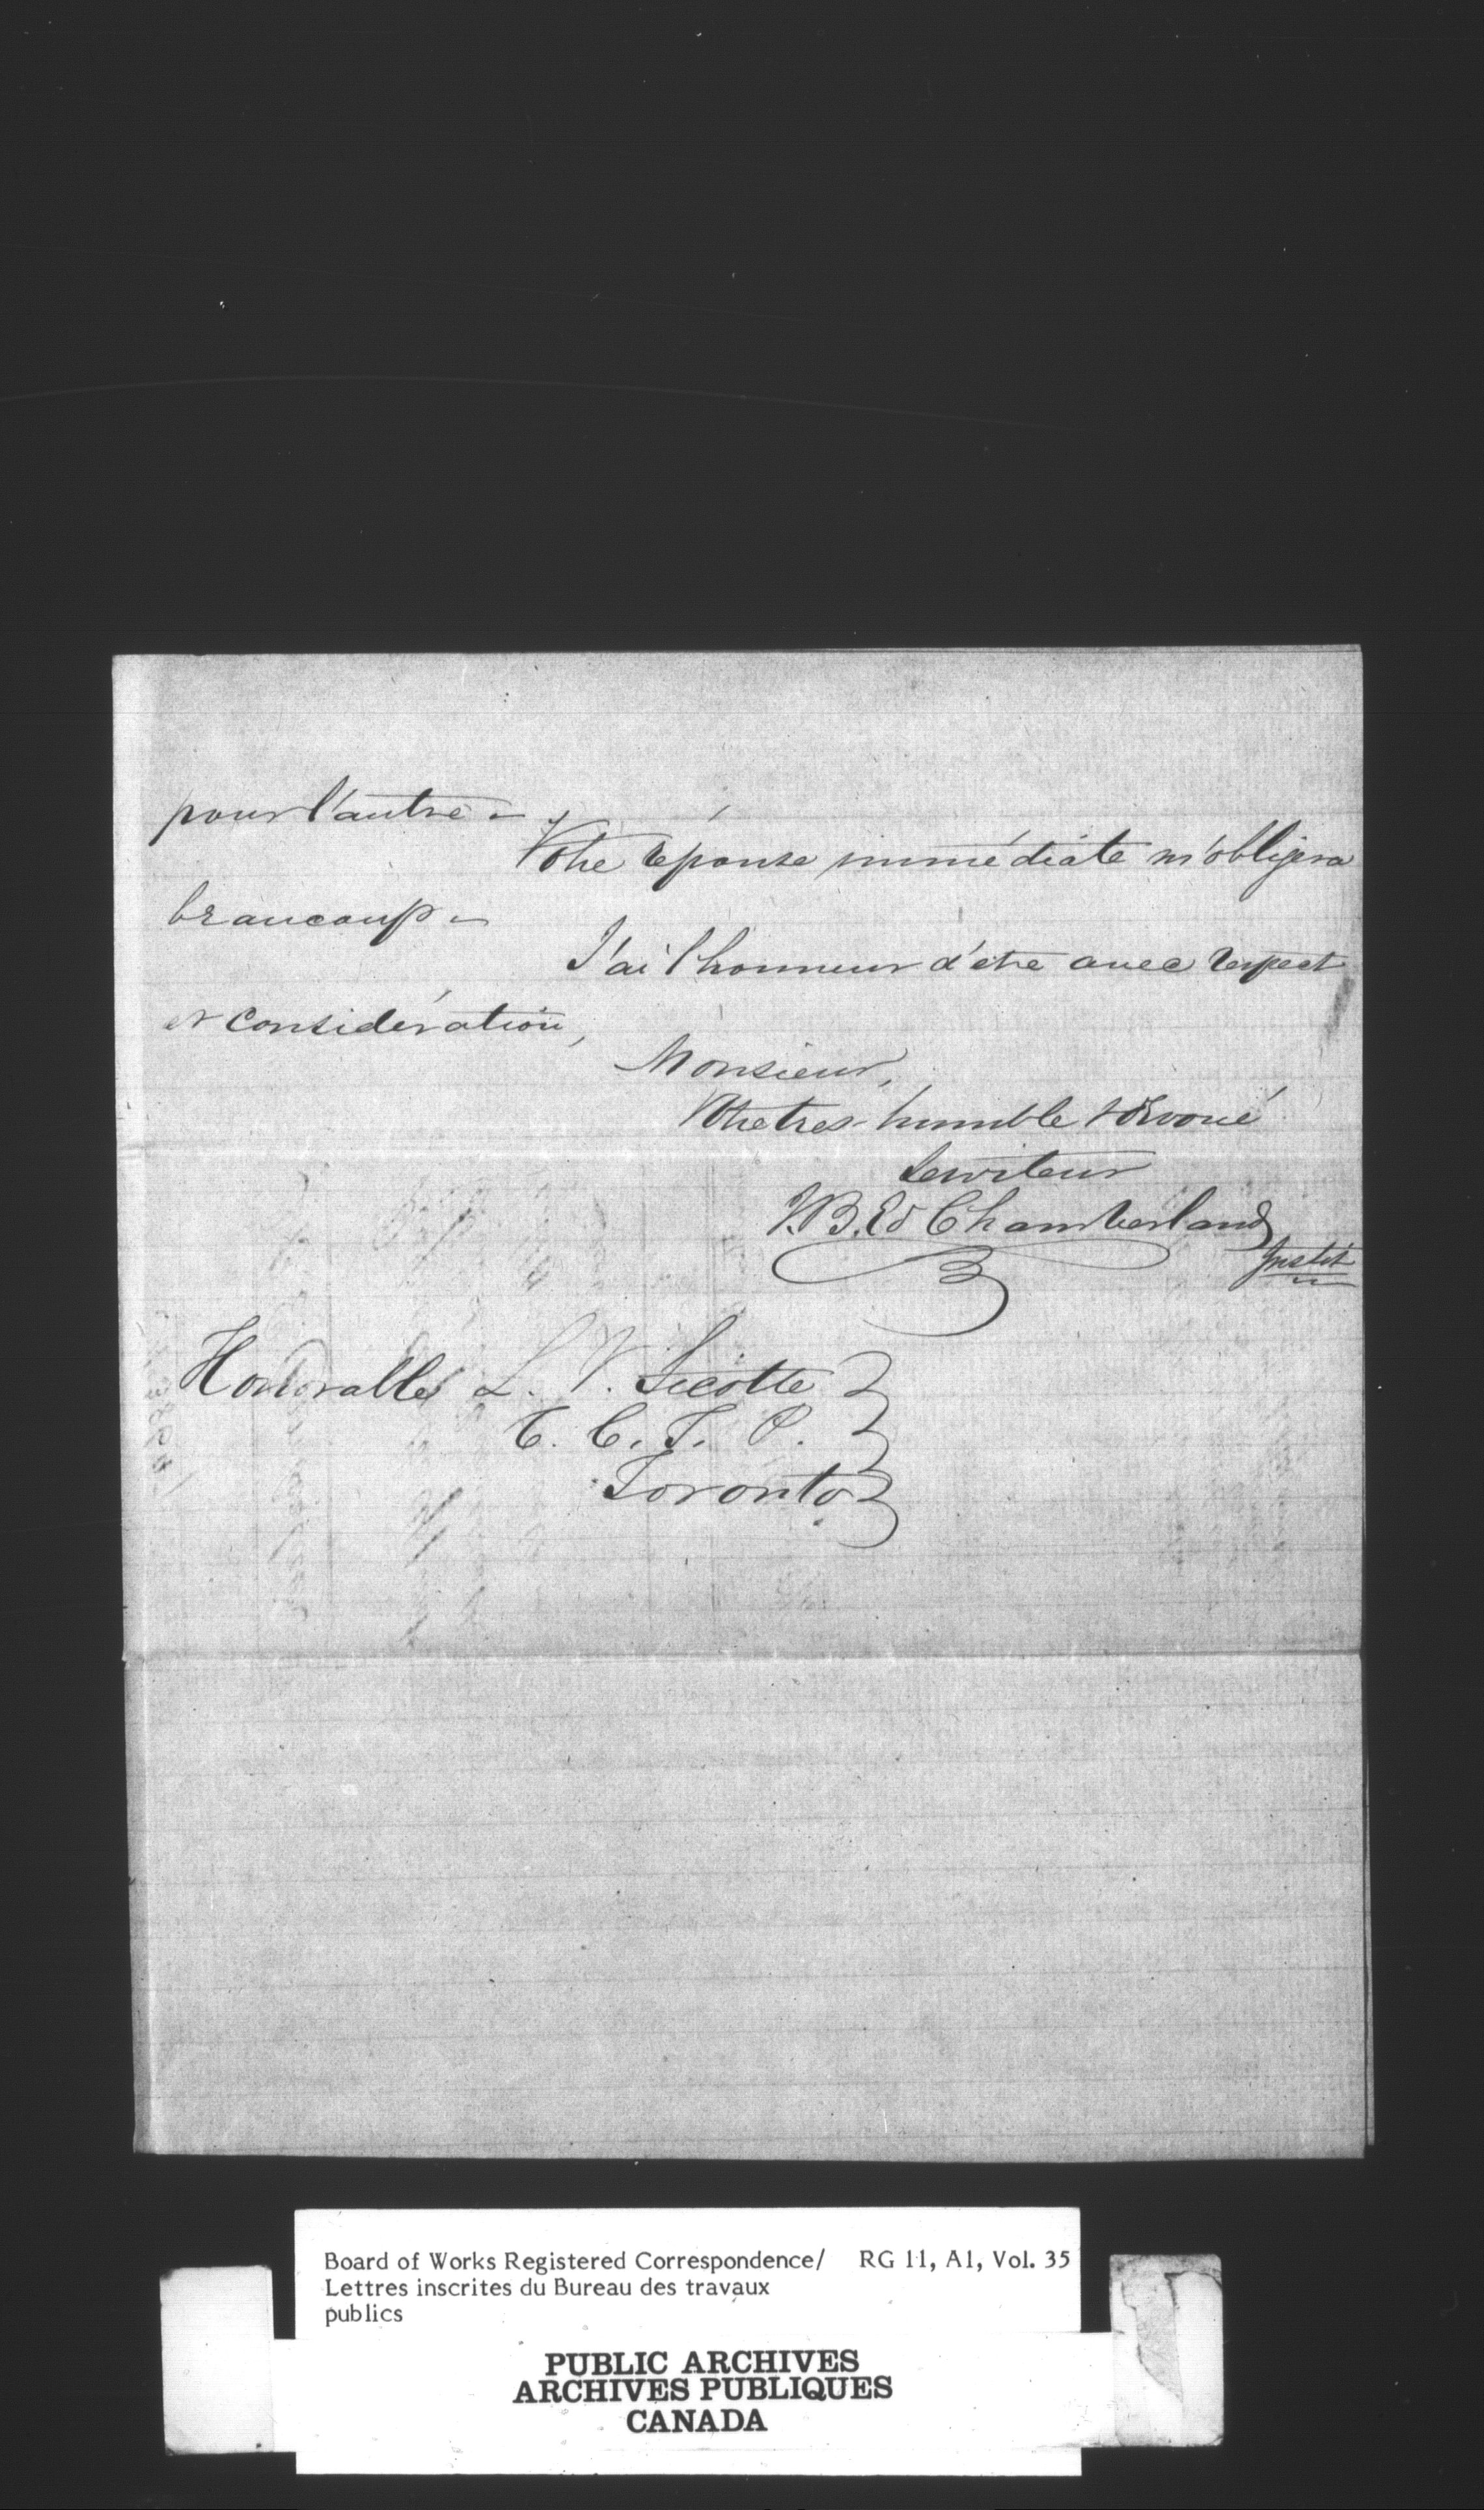 pour l'autre –
Votre réponse immédiate m'obligera
beaucoup –
J'ai l'honneur d'etre avec respect
et considération,
Monsieur,
Votre tres-humble & dévoué
serviteur
J. B. Ed Chamberland
Instit
Honorable L. V. Sicotte
C. C. T. P.
Toronto
Board of Works Registered Correspondence/ RG 11, A1, Vol. 35
Lettres inscrites du Bureau des travaux
publics
PUBLIC ARCHIVES
ARCHIVES PUBLIQUES
CANADA